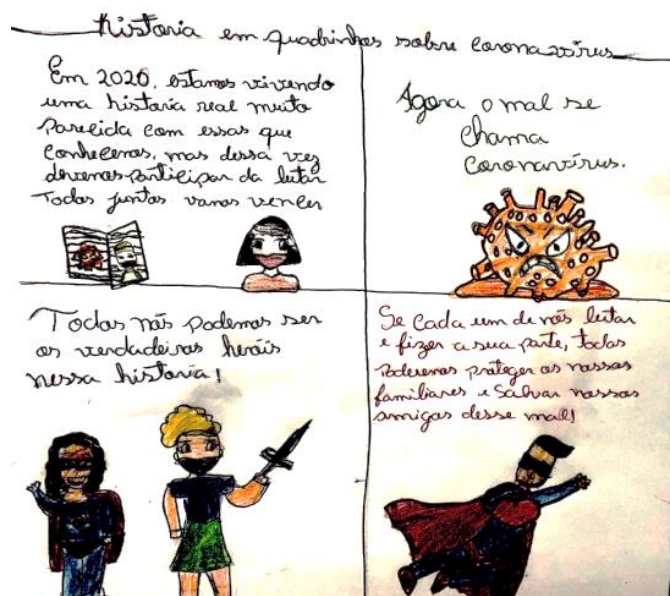 história em quadrinhos sobre coronavírus
Em 2020, estamos vivendo
uma história real muito
parecida com essas que
conhecemos, mas dessa vez
devemos participar da lutar
Todos juntos vamos vencer
Agora o mal se
chama
coronavírus.
Todos nós podemos ser
os verdadeiros heróis
nessa história!
Se cada um de nós lutar
e fizer a sua parte, todos
poderemos proteger os nossos
familiares e salvar nossos
amigos desse mal!